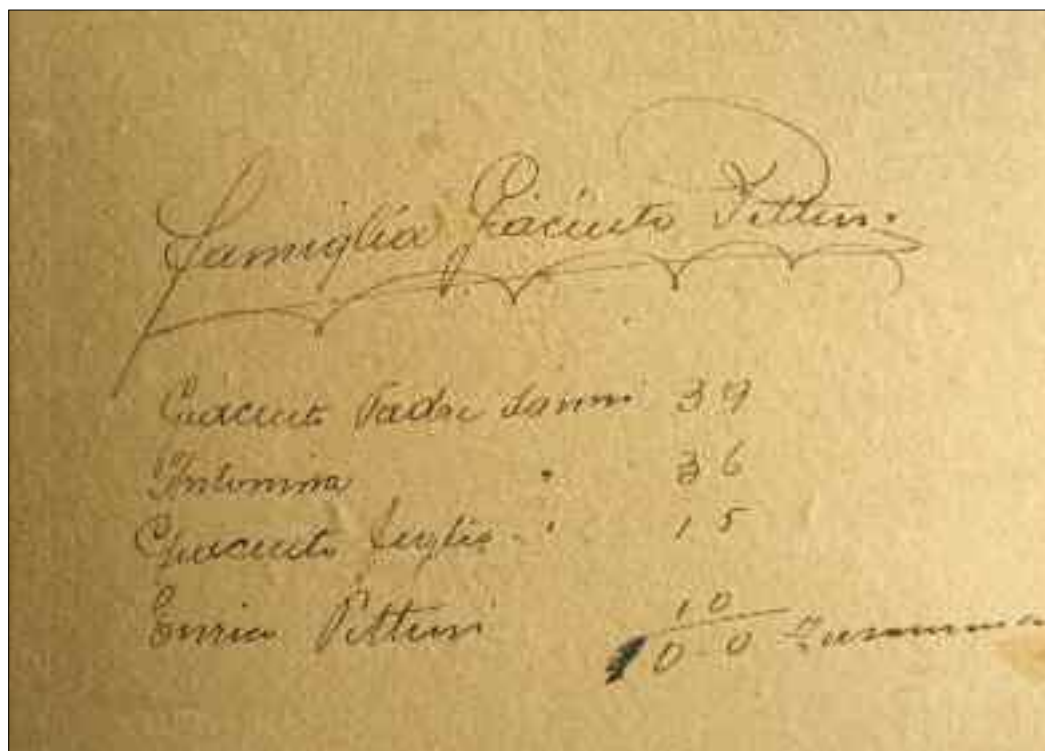 Famiglia Giacinto Pitteri.
Giacinto Padre d'anni 39
Antonina " 36
Giacinto figlio " 15
Enrico Pitteri 10
100